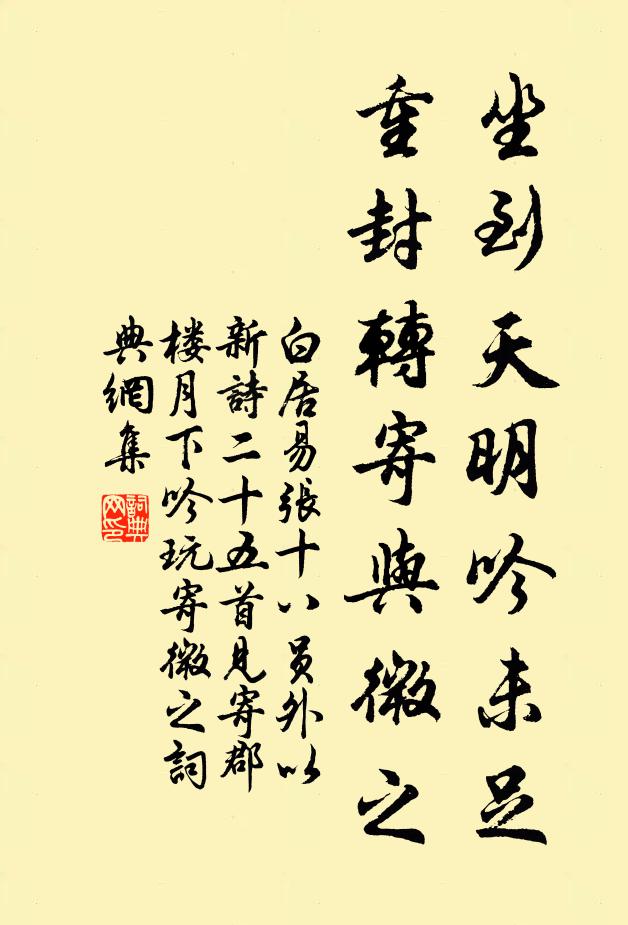 坐到天明吟未足
重封轉寄與微之
白居易張十八员外以
新詩二十五首見寄郡
楼月下吟玩寄微之詞
典網集
詞典
网印